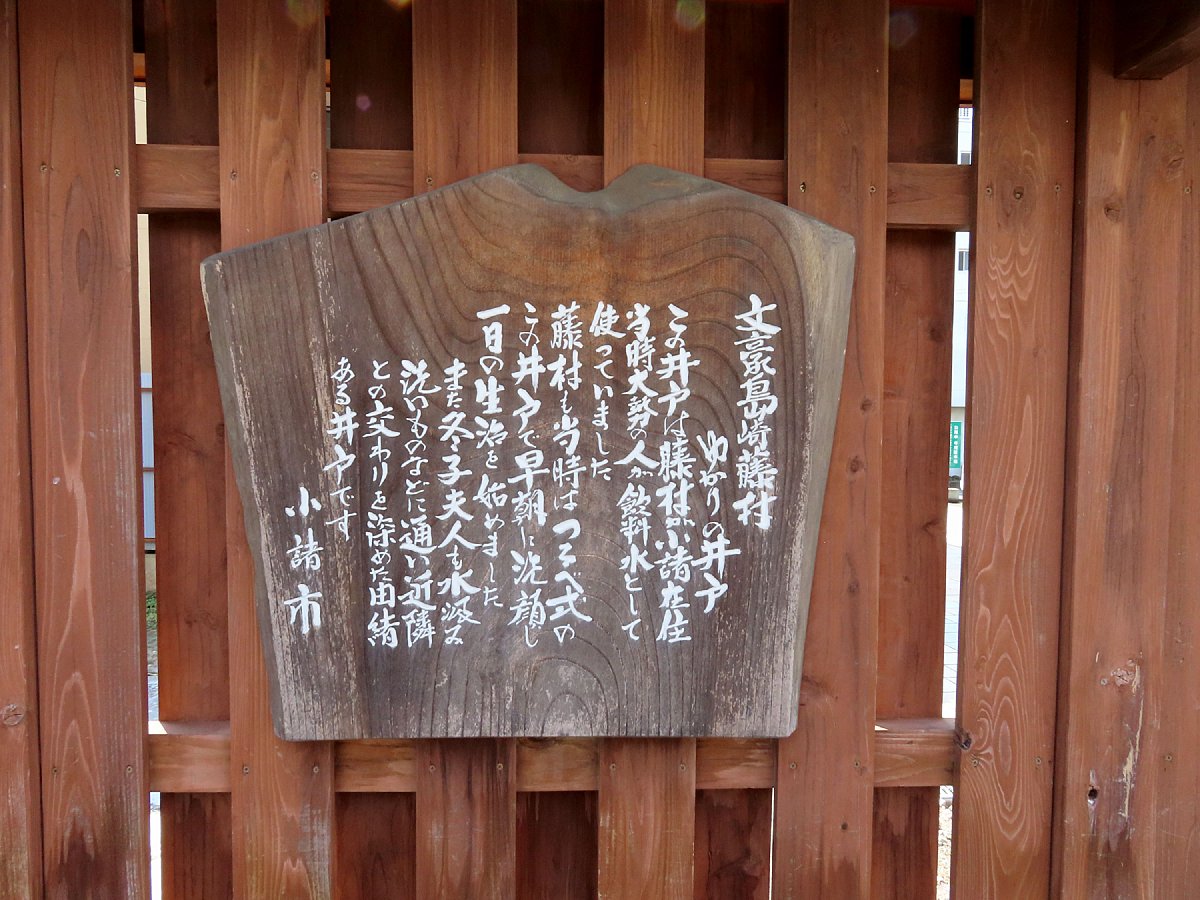 文豪島崎藤村
ゆかりの井戸
この井戸は藤村が小諸在住
当時大勢の人が飲料水として
使っていました
藤村も当時はつるべ式の
この井戸で早朝に洗顔し
一日の生活を始めました
また冬子夫人も水汲み
洗いものなどに通い近隣
との交わりを深めた由緒
ある井戸です
小諸市